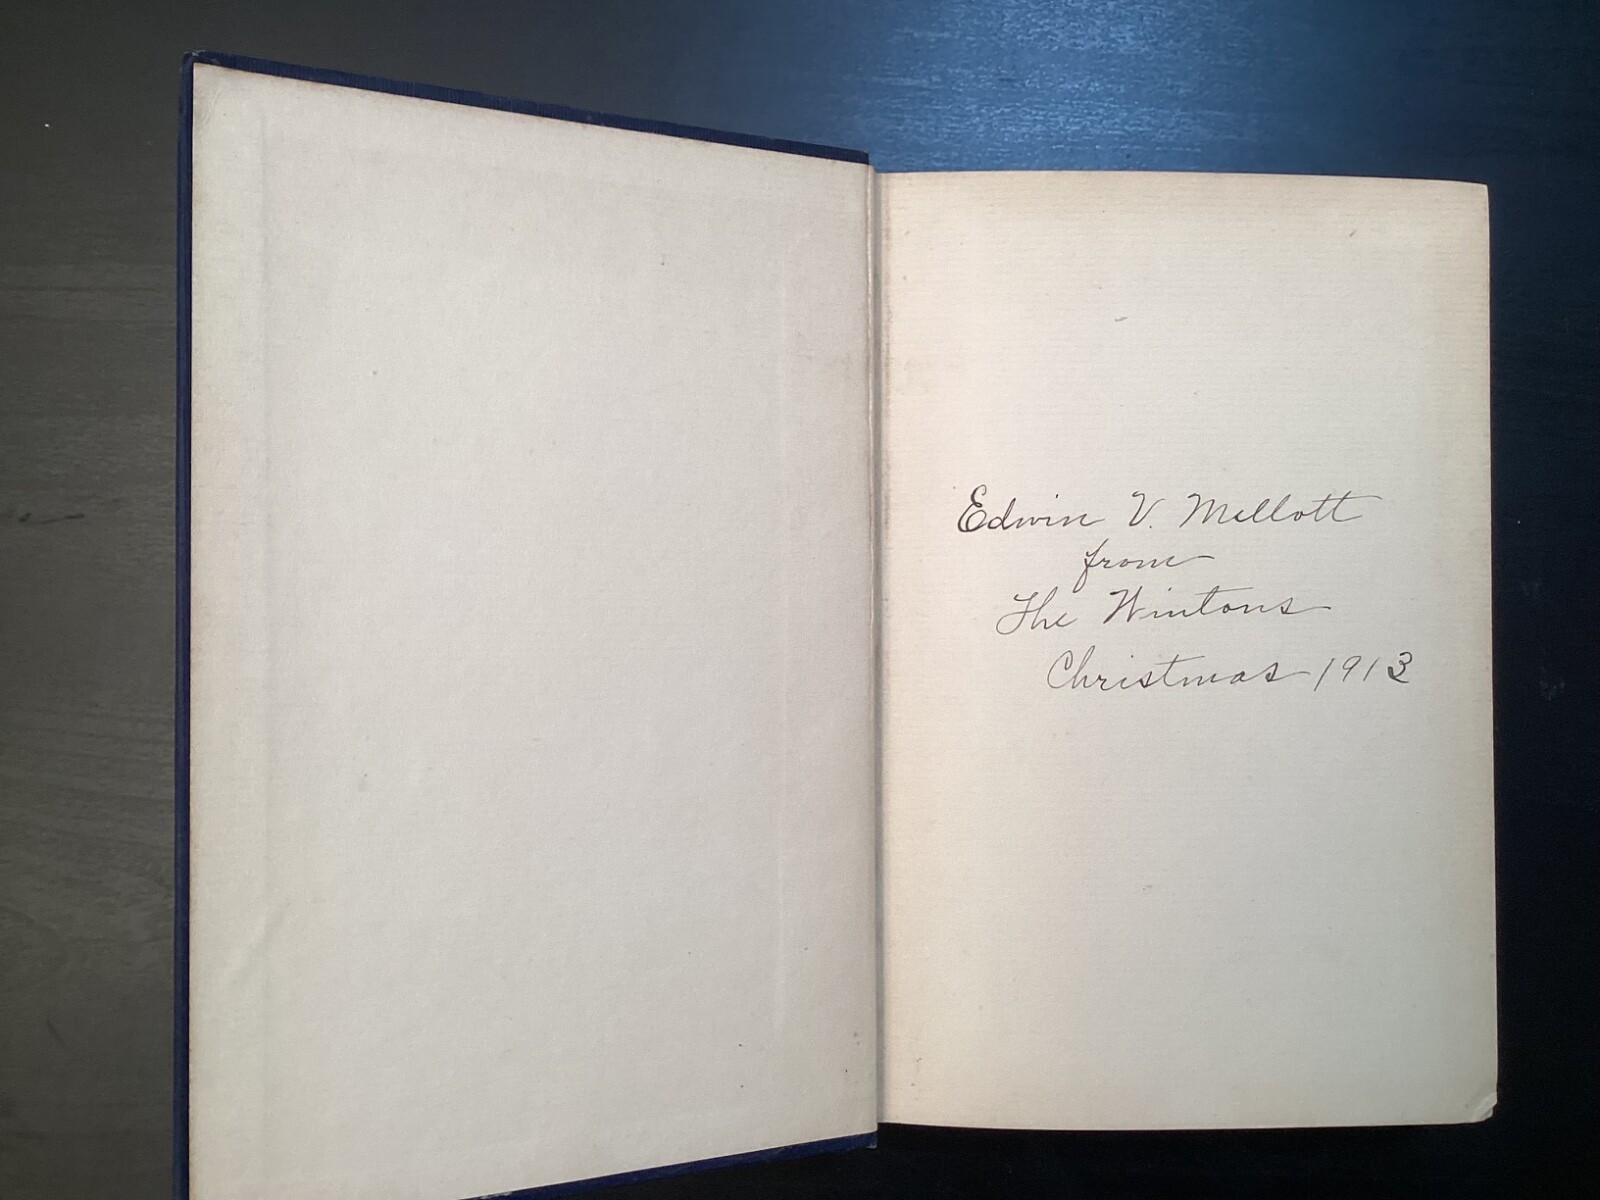 Edwin V. Mellott
from
The Wintons
Christmas 1913